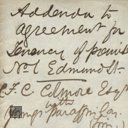 Addenda to
Agreement for
Tenancy of premises
No 1 Edmund St.
C. Elmore Esqr
with